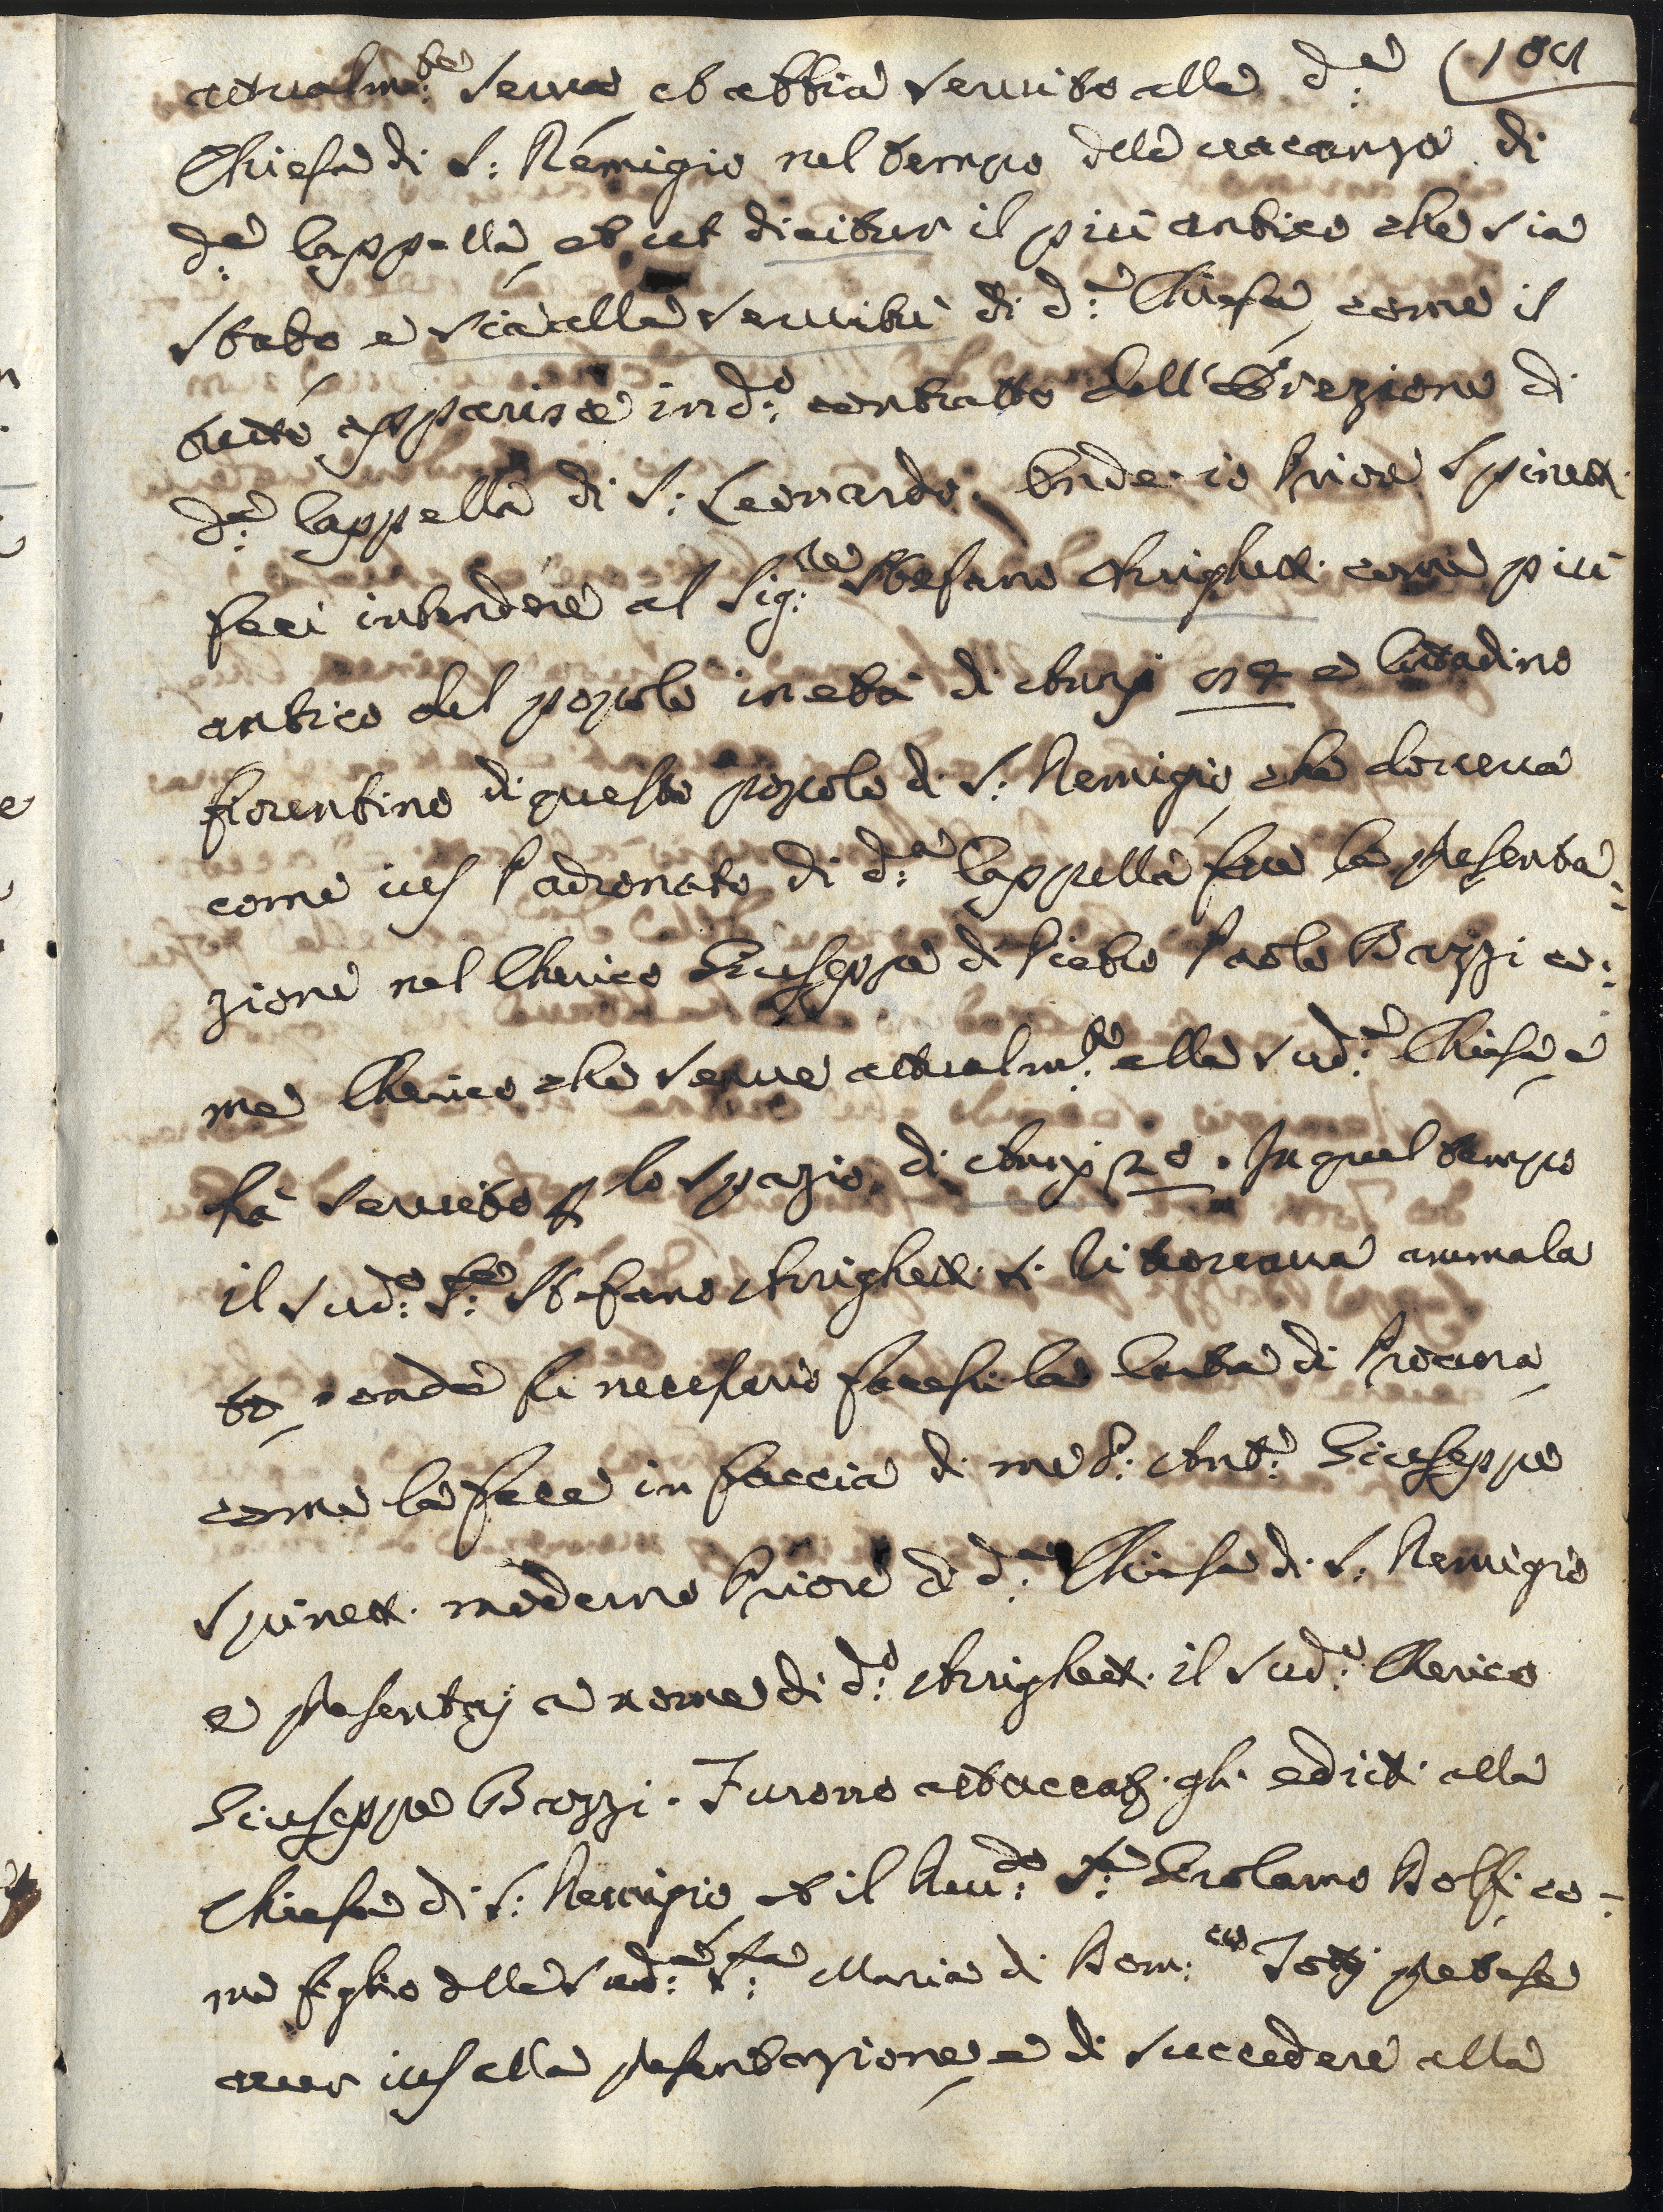 109
attualm:te serva et abbia servito alla d:a
Chiesa di S: Remigio nel tempo della vacanza di
d:a Cappella, et ut dicitur il più antico che sia
stato e sia alla servitù di d:a Chiesa, come il
tutto apparisce in d:o contratto dell'Erezione di
d:a Cappella di S: Leonardo. Onde io Prior Spinett.
feci intendere al Sig:re Stefano Arrighett. come più
antico del popolo in età di Anni e Cittadino
fiorentino di questo popolo di S: Remigio, che doveva
come ius Padronato di d:a Cappella fare la presenta:
zione nel Cherico Giuseppe di Pietro Paolo Bazzi co:
me Cherico che serve attualm:te alla sud:a Chiesa, e
hà servito p lo spazio di Anni 20. In quel tempo
il sud:o S:re Stefano Arrighett. si ritrovava ammala
to, onde fù necessario facessi la Carta di Procura,
come la fece in faccia di me P: Ant:o Giuseppe
Spinett. moderno Priore di d:a Chiesa di S: Remigio
e presentaij a nome di d:o Arrighett. il sud:o Cherico
Giuseppe Bazzi. Furono attaccati gli editt. alla
Chiesa di S: Remigio, et il Rev:do S:re Girolamo Bolfi co-
me figlio della sud:a S:ra Maria di Dom:co pretese
aver ius alla presentazione, e di succedere alla